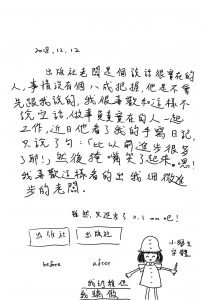 2018.12.12
出版社老闆是個說話很實在的
人,事情沒有個八成把握,他是不會
先跟我說的,我很喜歡和這樣不
說空話,做事真真實實在的人一起
工作,近日他看了我的手寫日記,
只說了句:「比以前進步很多
了耶!」然後掩嘴笑了起來。嗯!
我喜歡這樣看的出我細微進
步的老闆。
雖然只進步了0.1mm吧!
出版社
出版社
before
after
小學生
字體
我的雜但
我驕傲